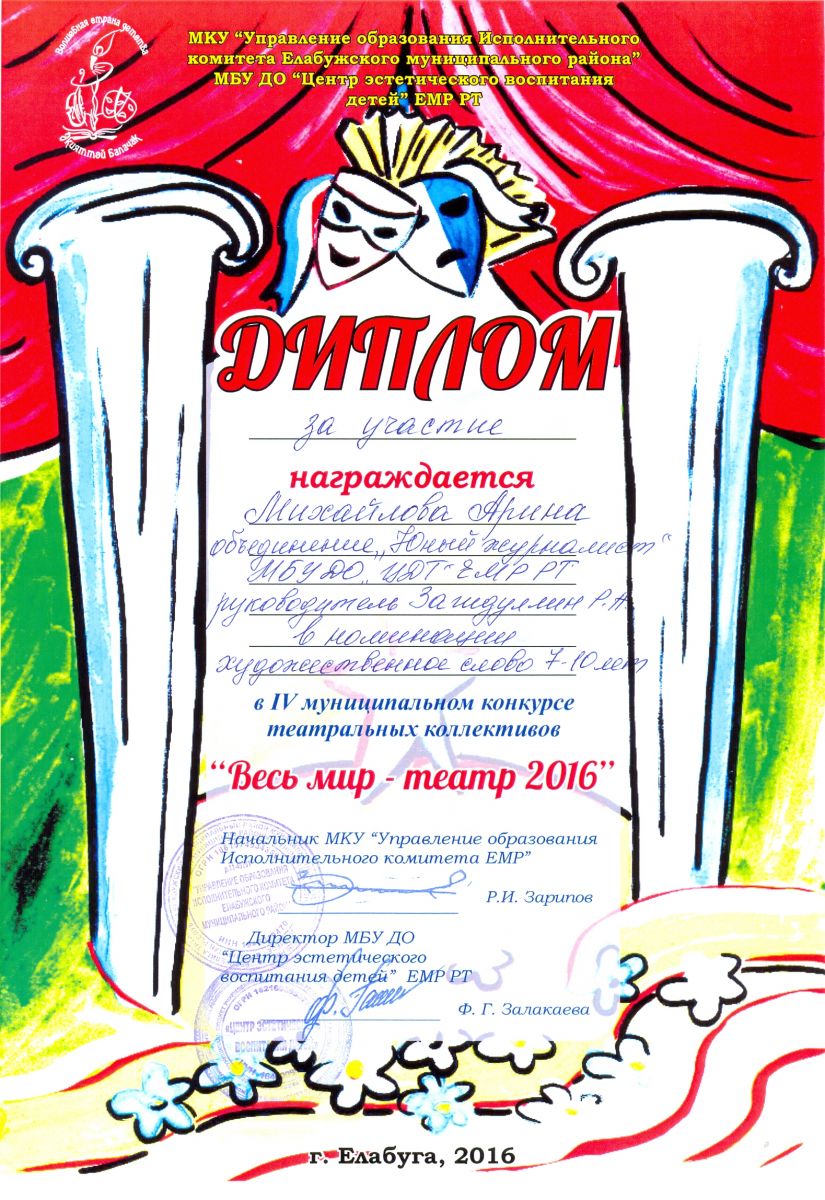 Волшебная страна детства
Җияттәй балачак
МКУ “Управление образования Исполнительного
комитета Елабужского муниципального района”
МБУ ДО “Центр эстетического воспитания
детей” ЕМР РТ
ДИПЛОМ
за участие
награждается
Михайлова Арина
объединение „Юный журналист“
МБУ ДО „ЦДТ“ ЕМР РТ
руководитель Загидуллин Р.А.
в номинации
художественное слово 7-10 лет
в IV муниципальном конкурсе
театральных коллективов
“Весь мир - театр 2016”
Начальник МКУ “Управление образования
Исполнительного комитета ЕМР”
Р.И. Зарипов
УПРАВЛЕНИЕ ОБРАЗОВАНИЯ
ИСПОЛНИТЕЛЬНОГО КОМИТЕТА
ЕЛАБУЖСКОГО
МУНИЦИПАЛЬНОГО РАЙОНА
Директор МБУ ДО
“Центр эстетического
воспитания детей” ЕМР РТ
Ф. Г. Залакаева
«ЦЕНТР ЭСТЕТИЧЕСКОГО
ВОСПИТАНИЯ ДЕТЕЙ»
г. Елабуга, 2016